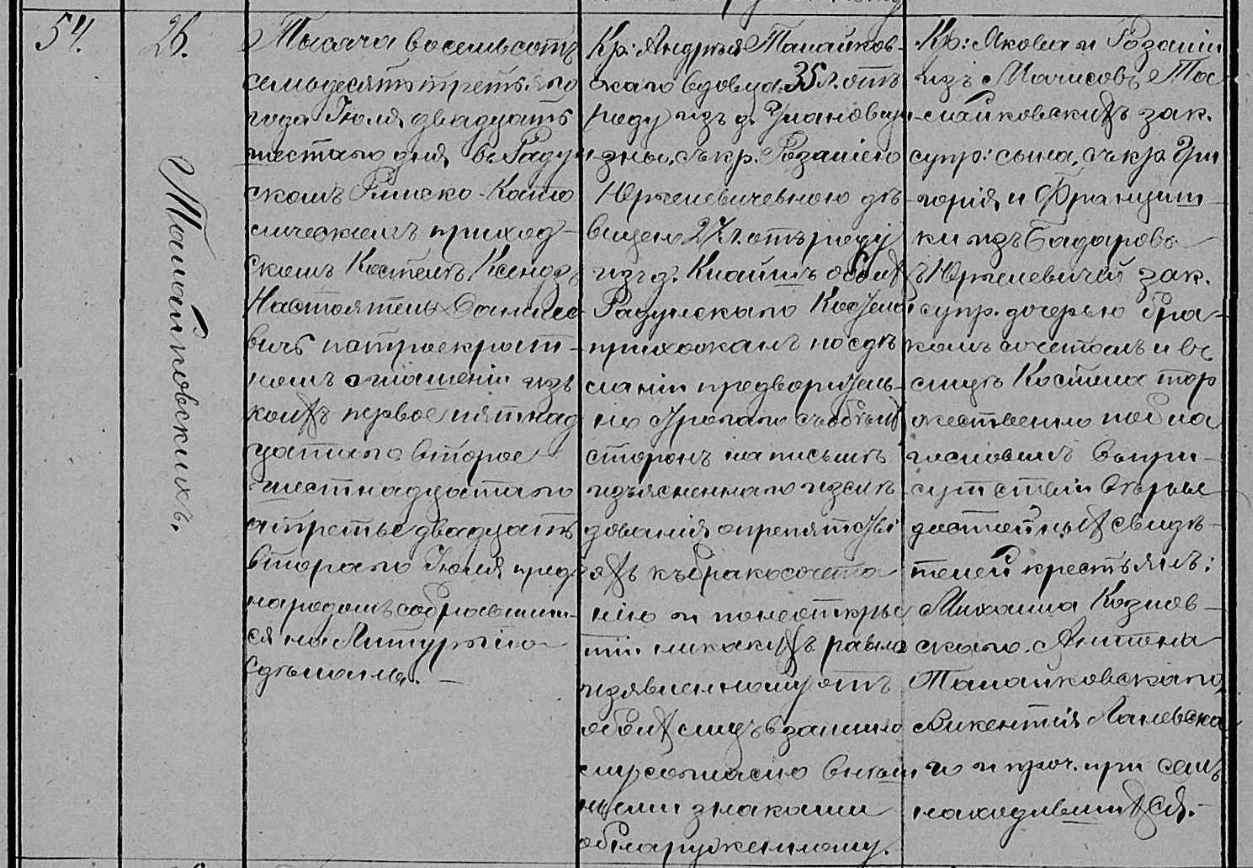 54.
26.
Талайковскихъ.
Тысяча восемьсотъ
семьдесятъ третьяго
года Іюля двадцать
шестаго дня въ Радун
скомъ Римско-Като
лическомъ приход-
скомъ Костелѣ Ксендзъ
Настоятель
вичъ по троекрат-
номъ оглашеніи изъ
коихъ первое пятнад
цатаго второе
шестнадцатаго
а третье двадцать
втораго Іюля предъ
народомъ собравшим-
ся на Литургію
сдѣланы.
Кр: Андрея Талайков-
скаго вдовца 35 л. отъ
роду изъ д. Улановщи
зны, съ кр. Розаліею
Юржелевичевною дѣ
вицею 27 л. отъ роду
изъ д. обоихъ
Радунскаго Костела
прихожанъ по сдѣ
ланіи предваритель-
но строгаго съ обоихъ
сторонъ на письмѣ
изъясненнаго изслѣ
дованія о препятстві
яхъ къ бракосочета
нію и по неоткры
тіи никакихъ равно
изъявленному отъ
обоихъ лицъ взаимно
му согласію внѣш
ними знаками
обнаруженному.
Кр: Якова и Розаліи
изъ Та
лайковскихъ зак.
супр: сына, съ кр. Гри
горія и Францишки
ки изъ Бадаровъ
Юржелевичей зак.
супр. дочерью бра-
комъ сочеталъ и въ
лицѣ Костела тор
жественно побла
гословилъ въ при-
сутствіи вѣры
достойныхъ свидѣ-
телей крестьянъ:
Михаила Козлов-
скаго. Антона
Талайковскаго,
Викентія Ланевска
го и проч. при семъ
находившихся.